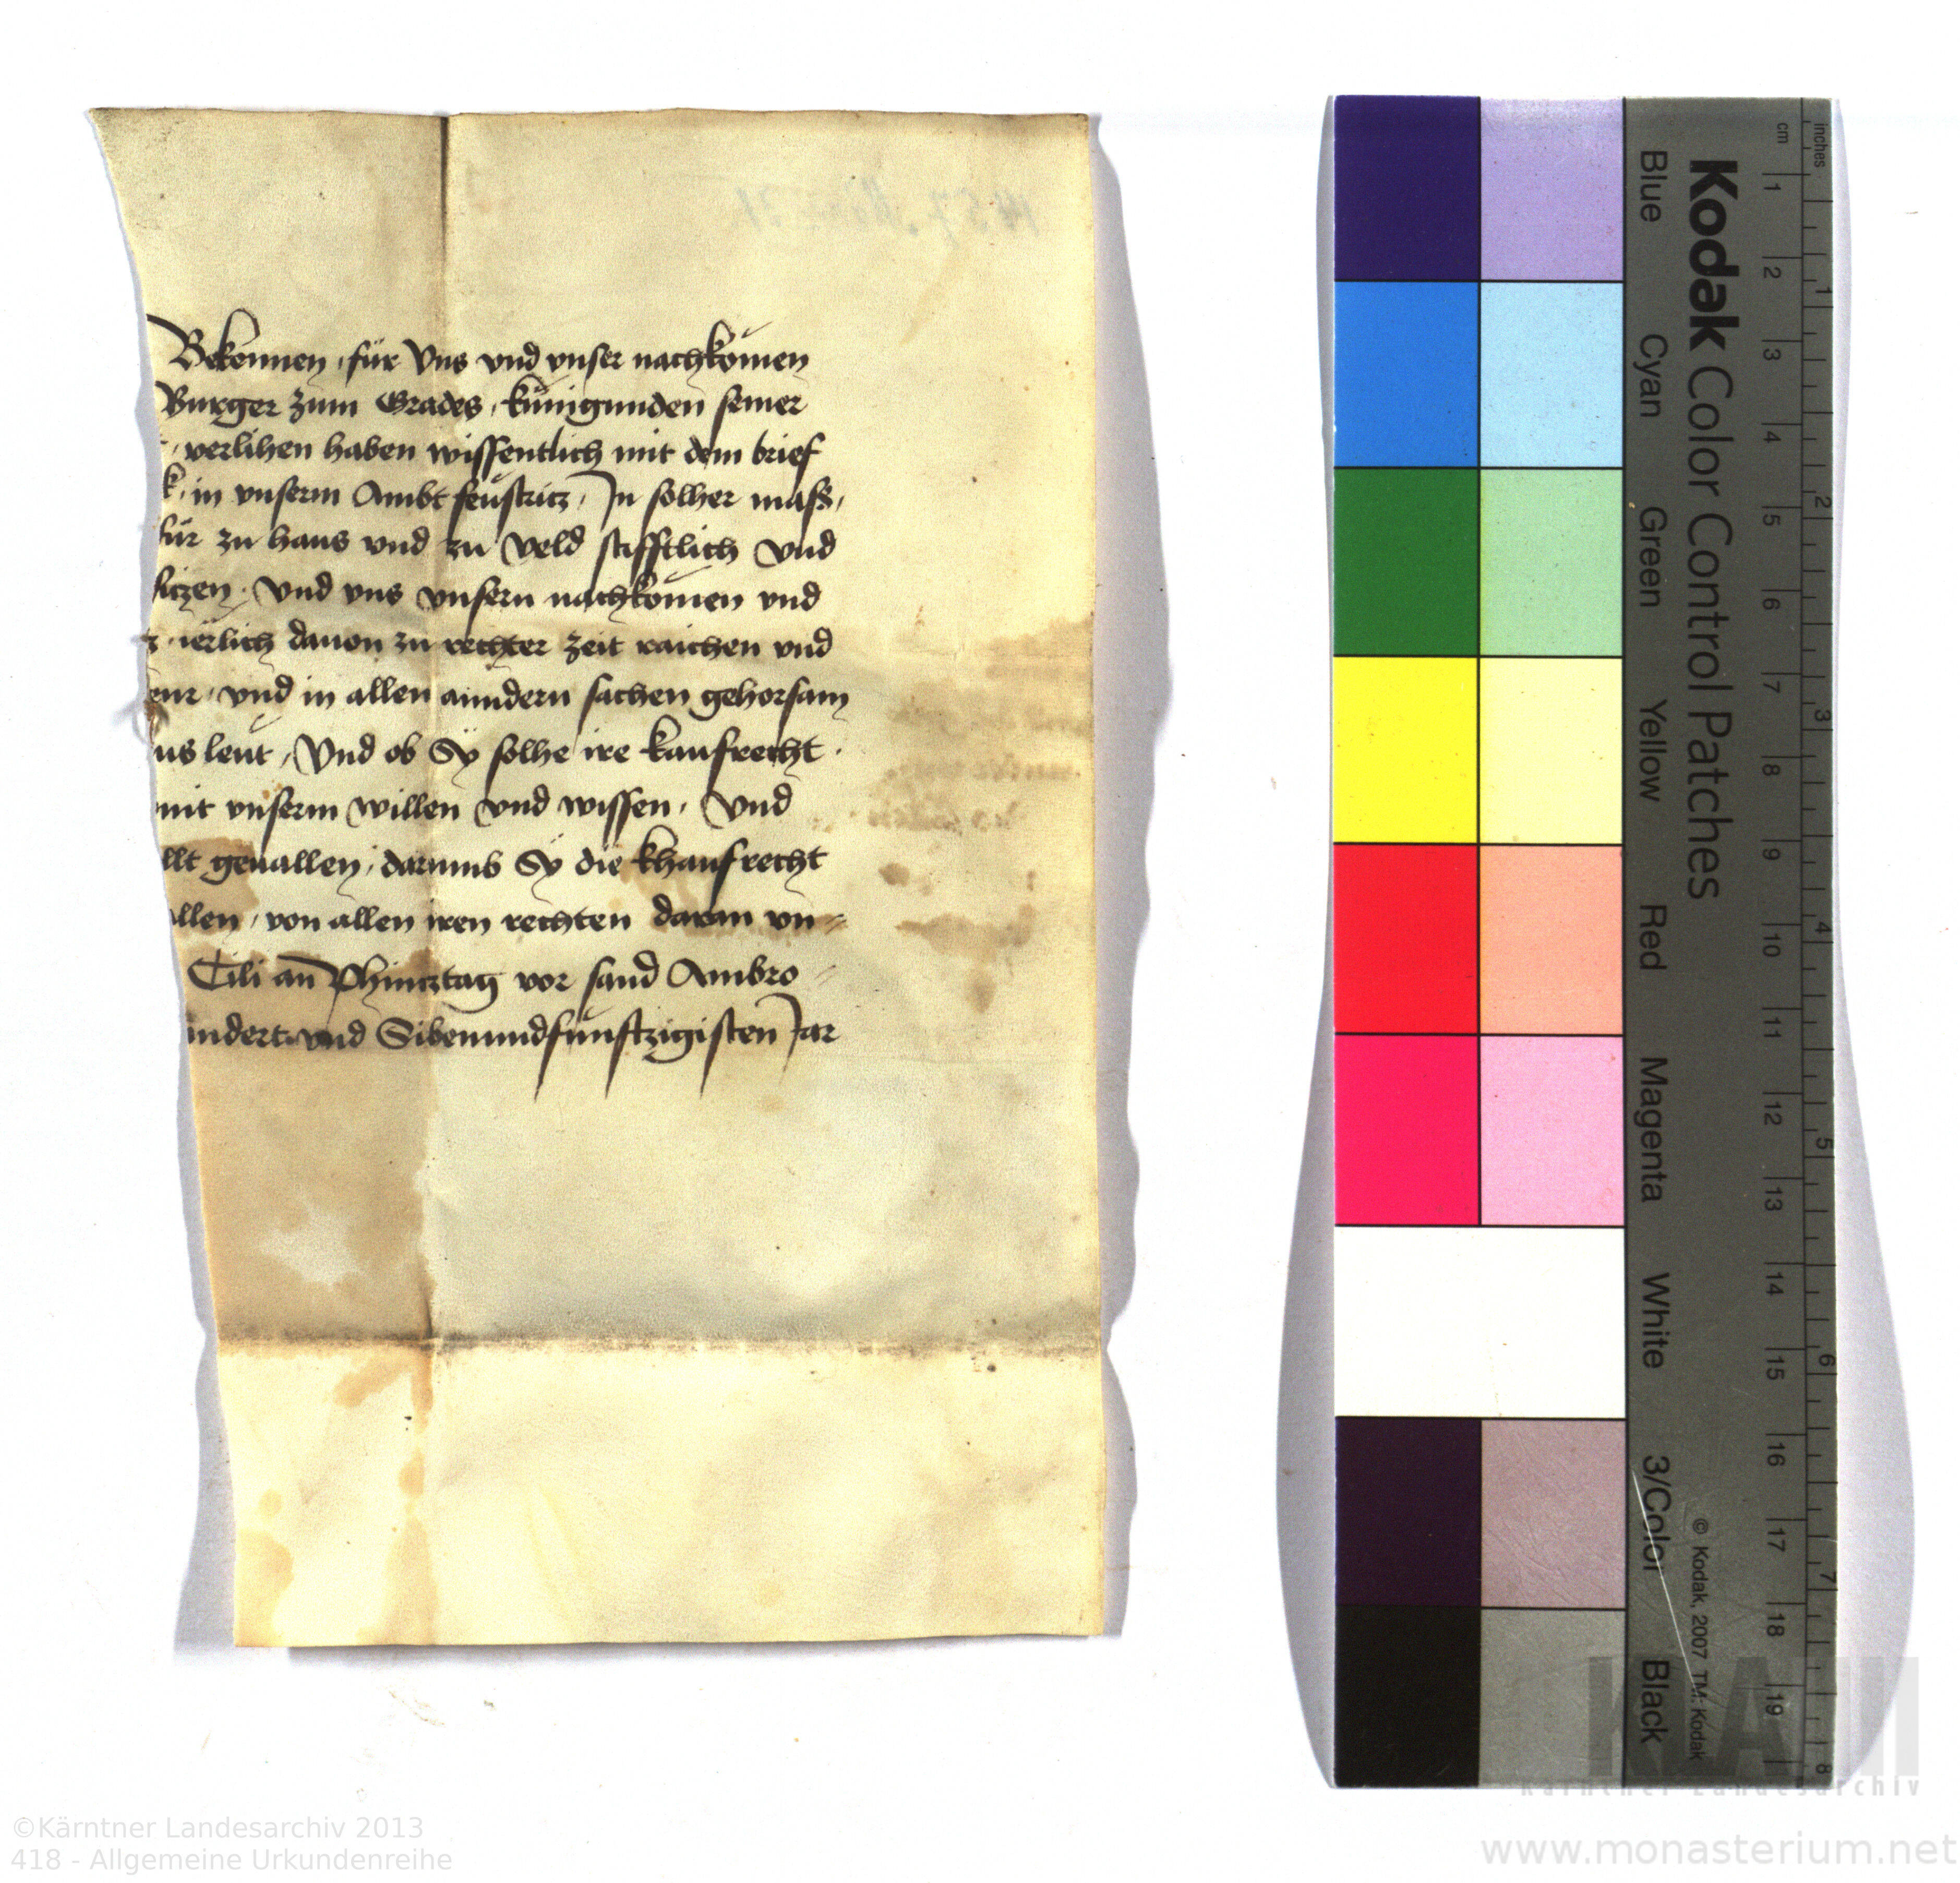 Bekennen, für Vns vnd vnser nachkömen
Burger zum Grades, künigunden seiner
, verlihen haben wissentlich mit dem brief
k, in vnserm Ambt feustricz, In solher mass,
für zu haus vnd zu veld stifftlich vnd
siczen, vnd vns vnsern nachkömen vnd
z ierlich dauon zu rechter zeit raichen vnd
enr, vnd in allen anndern sachen gehorsam
us leut, Vnd ob Sy solhe ire kaufrecht
mit vnserm willen vnd wissen, Vnd
llt geuallen, darumb Sy die khaufrecht
allen, von allen iren rechten daran vn=
Cili an Phincztag vor sand Ambro=
undert vnd Sibenundfünfftzigisten Jar
Kodak Color Control Patches
Blue Cyan Green Yellow Red Magenta White 3/Color Black
© Kodak, 2007 TM: Kodak
cm 1 2 3 4 5 6 7 8 9 10 11 12 13 14 15 16 17 18 19
inches 1 2 3 4 5 6 7 8
KLA
Kärntner Landesarchiv
©Kärntner Landesarchiv 2013
418 - Allgemeine Urkundenreihe
www.monasterium.net